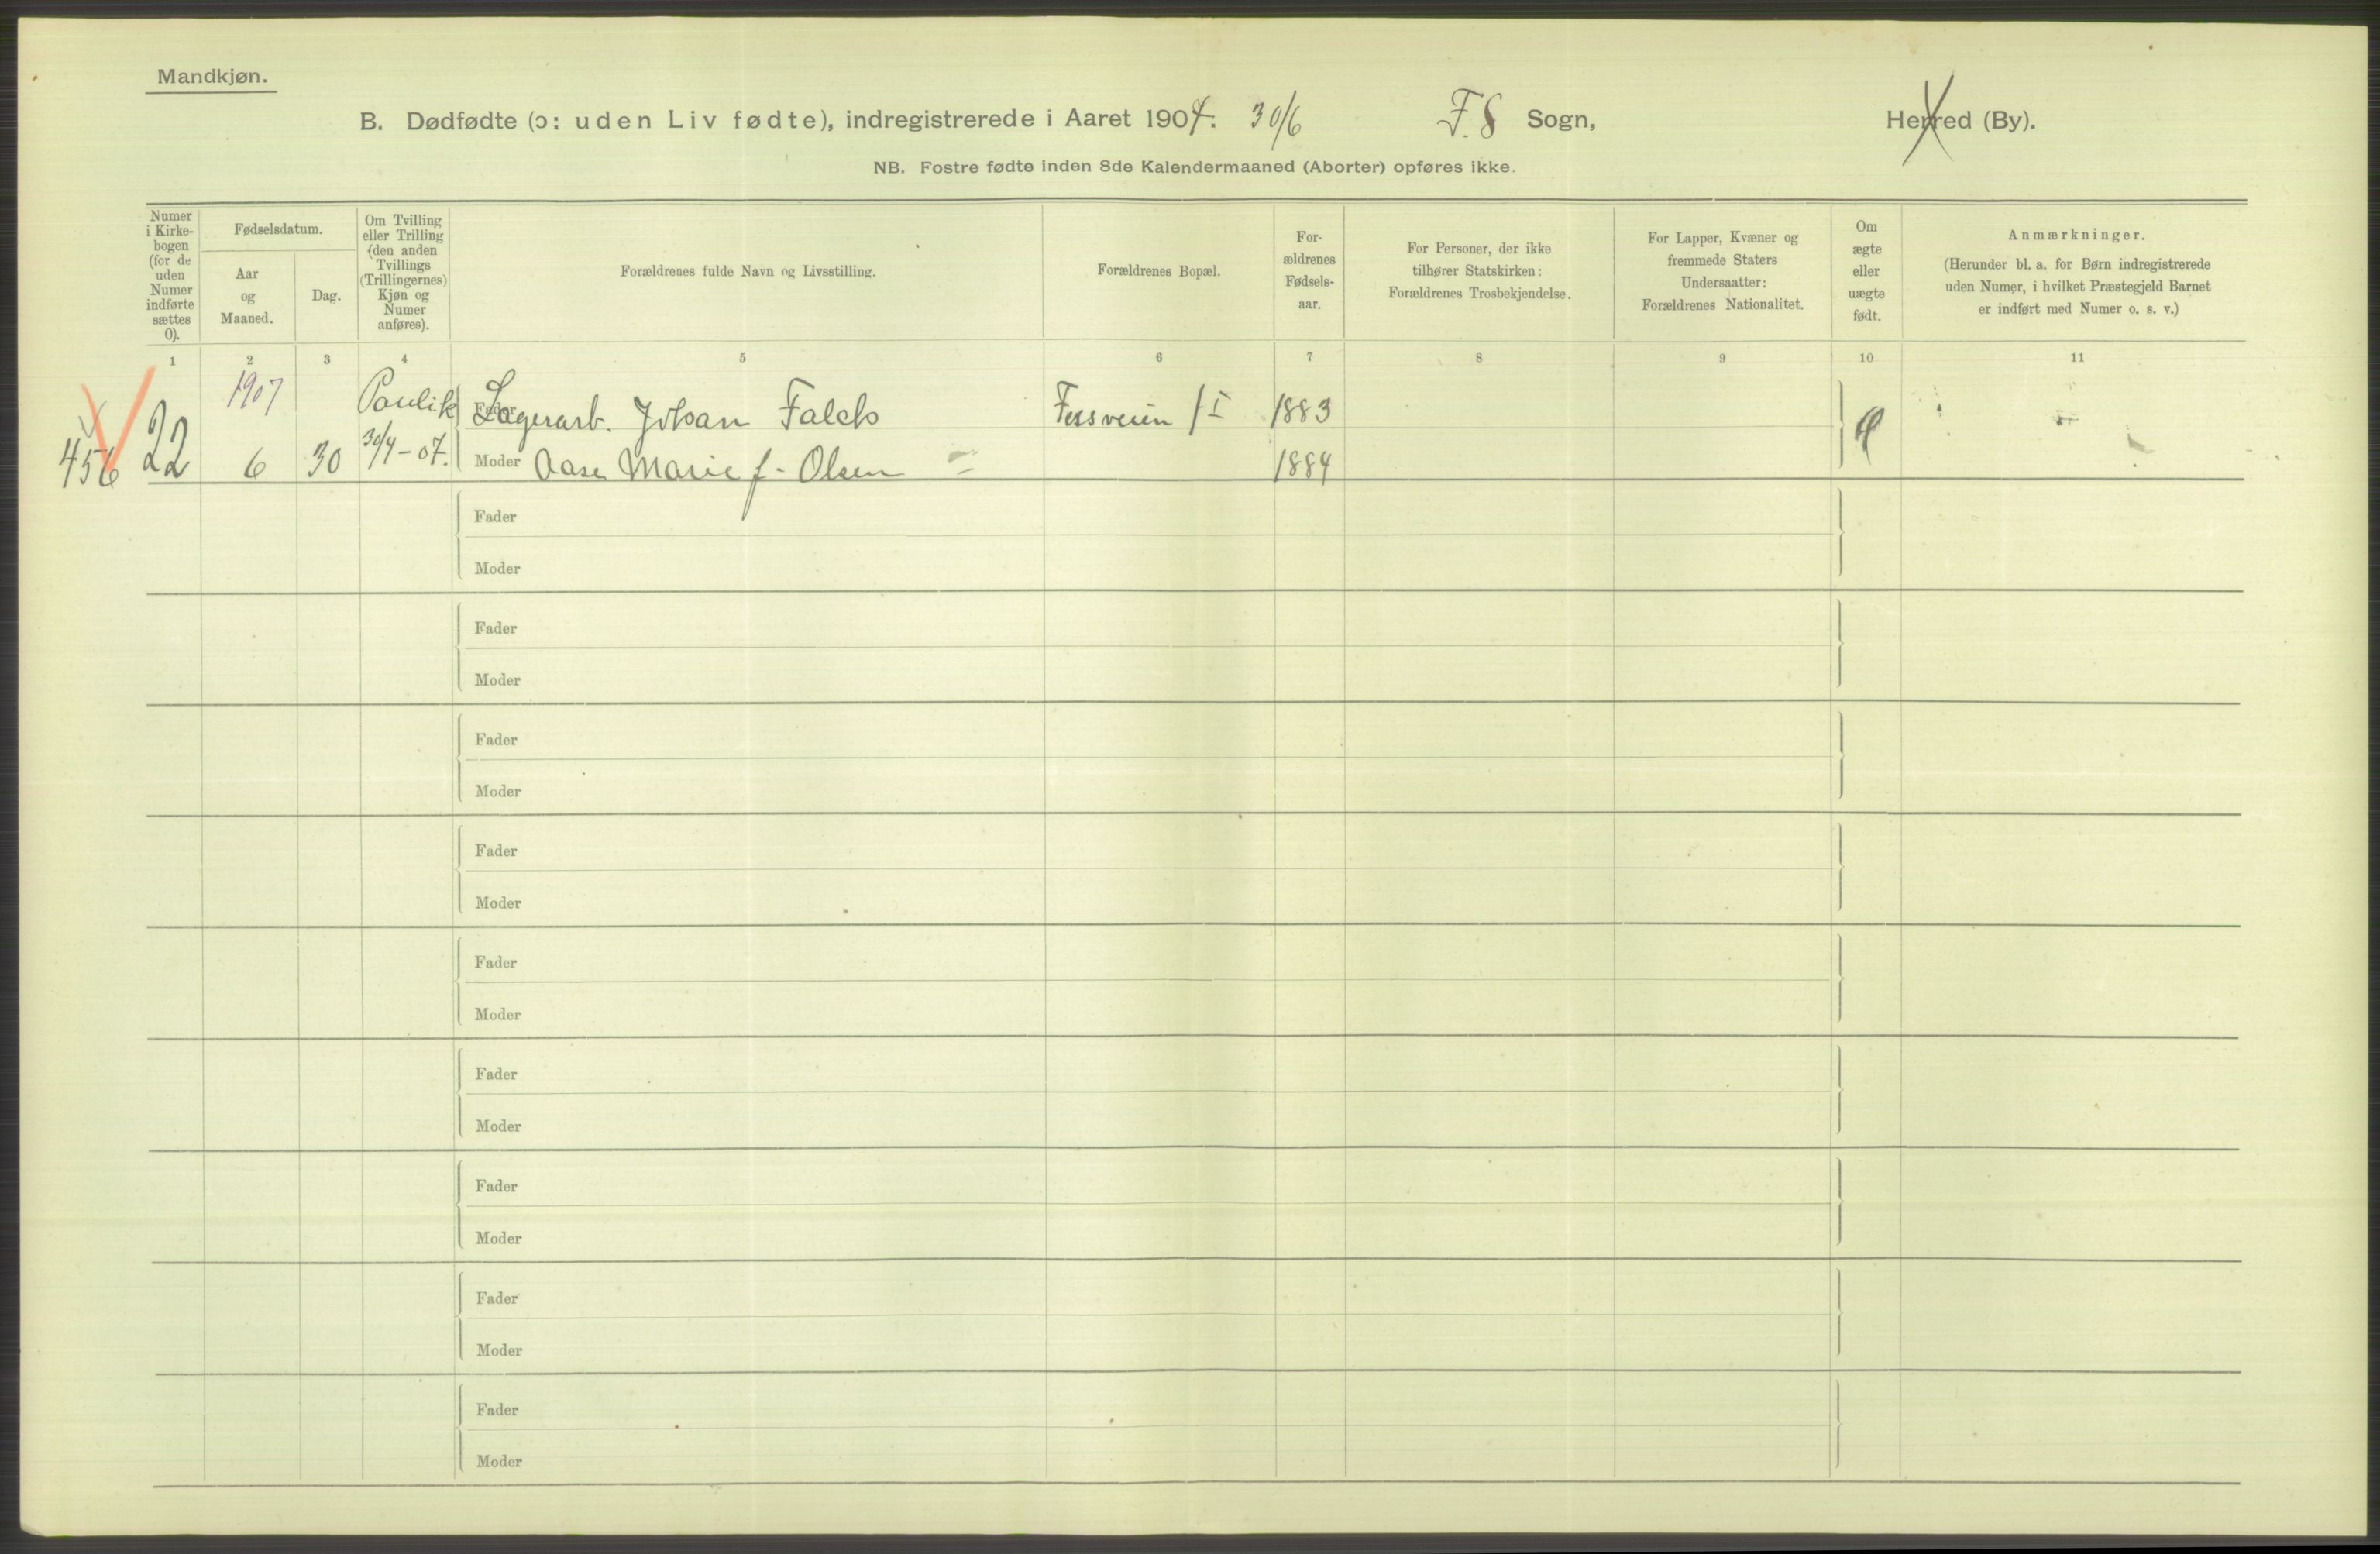 Mandkjøn.
B. Dødfødte (ɔ: uden Liv fødte), indregistrerede i Aaret 1907. 30/6 F. S Sogn, Herred (By).
NB. Fostre fødte inden 8de Kalendermaaned (Aborter) opføres ikke.
Numer
i Kirke-
bogen
(for de
uden
Numer
indførte
sættes
0).
Fødselsdatum.
Aar
og
Maaned.
Dag.
Om Tvilling
eller Trilling
(den anden
Tvillings
(Trillingernes)
Kjøn og
Numer
anføres).
Forældrenes fulde Navn og Livsstilling.
Forældrenes Bopæl.
For-
ældrenes
Fødsels-
aar.
For Personer, der ikke
tilhører Statskirken:
Forældrenes Trosbekjendelse.
For Lapper, Kvæner og
fremmede Staters
Undersaatter:
Forældrenes Nationalitet.
Om
ægte
eller
uægte
født.
Anmærkninger.
(Herunder bl. a. for Børn indregistrerede
uden Numer, i hvilket Præstegjeld Barnet
er indført med Numer o. s. v.)
1 2 3 4 5 6 7 8 9 10 11
1907 Fader Lagerarb. Johan Falch 1883
456 22 6 30 30/4-07. Moder Aase Marie f. Olsen 1884
Fader
Moder
Fader
Moder
Fader
Moder
Fader
Moder
Fader
Moder
Fader
Moder
Fader
Moder
Fader
Moder
Fader
Moder